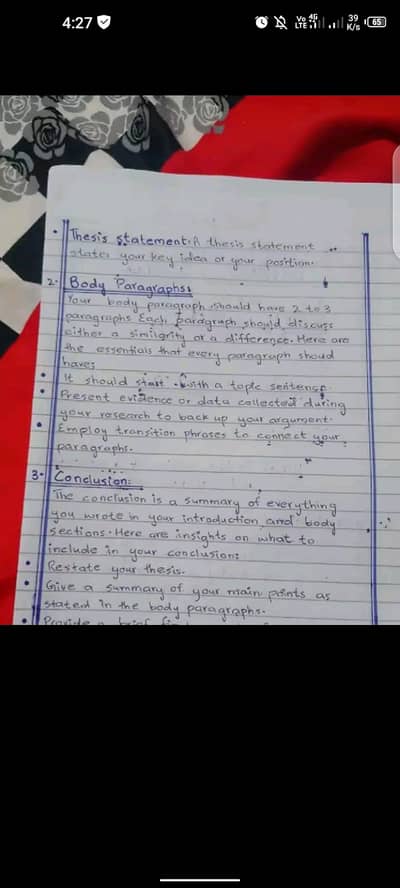 4:27
Vo LTE 4G 39 K/s 65
• Thesis statement: A thesis statement
states your key idea or your position.
2. Body Paragraphs:
Your body paragraph should have 2 to 3
paragraphs. Each paragraph should discuss
either a similarity or a difference. Here are
the essentials that every paragraph shoud
have:
• It should start with a topic sentence.
• Present evidence or data collected during
your research to back up your argument.
• Employ transition phrases to connect your
paragraphs.
3. Conclusion:
The conclusion is a summary of everything
you wrote in your introduction and body
sections. Here are insights on what to
include in your conclusion:
• Restate your thesis.
• Give a summary of your main points as
stated in the body paragraphs.
• Provide a brief